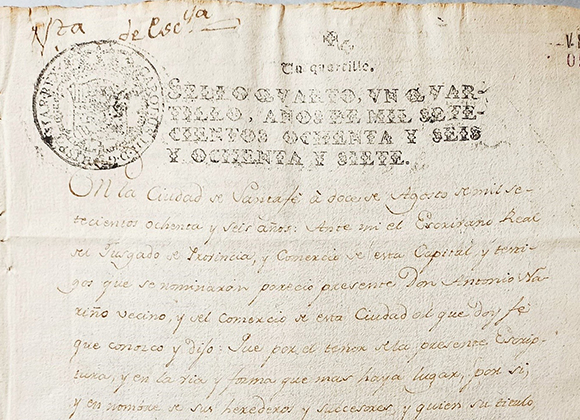 Vta de Escra
Un quartillo.
SELLO QUARTO, UN QVAR-
TILLO, AÑOS DE MIL SETE-
CIENTOS OCHENTA Y SEIS
Y OCHENTA Y SIETE.
En la Ciudad de Santafé à doce de Agosto de mil se-
tecientos ochenta y seis años: Ante mi el Escribano Real
del Jusgado de Provincia, y Comercio de esta Capital, y testi-
gos que se nominaràn pareció presente Don Antonio Na-
riño vecino, y del Comercio de esta Ciudad al que doy fé
que conosco y dijo: Que por el tenor de la presente Escrip-
tura, y en la via y forma que mas haya lugar, por si,
y en nombre de sus herederos y successores, y quien su titulo